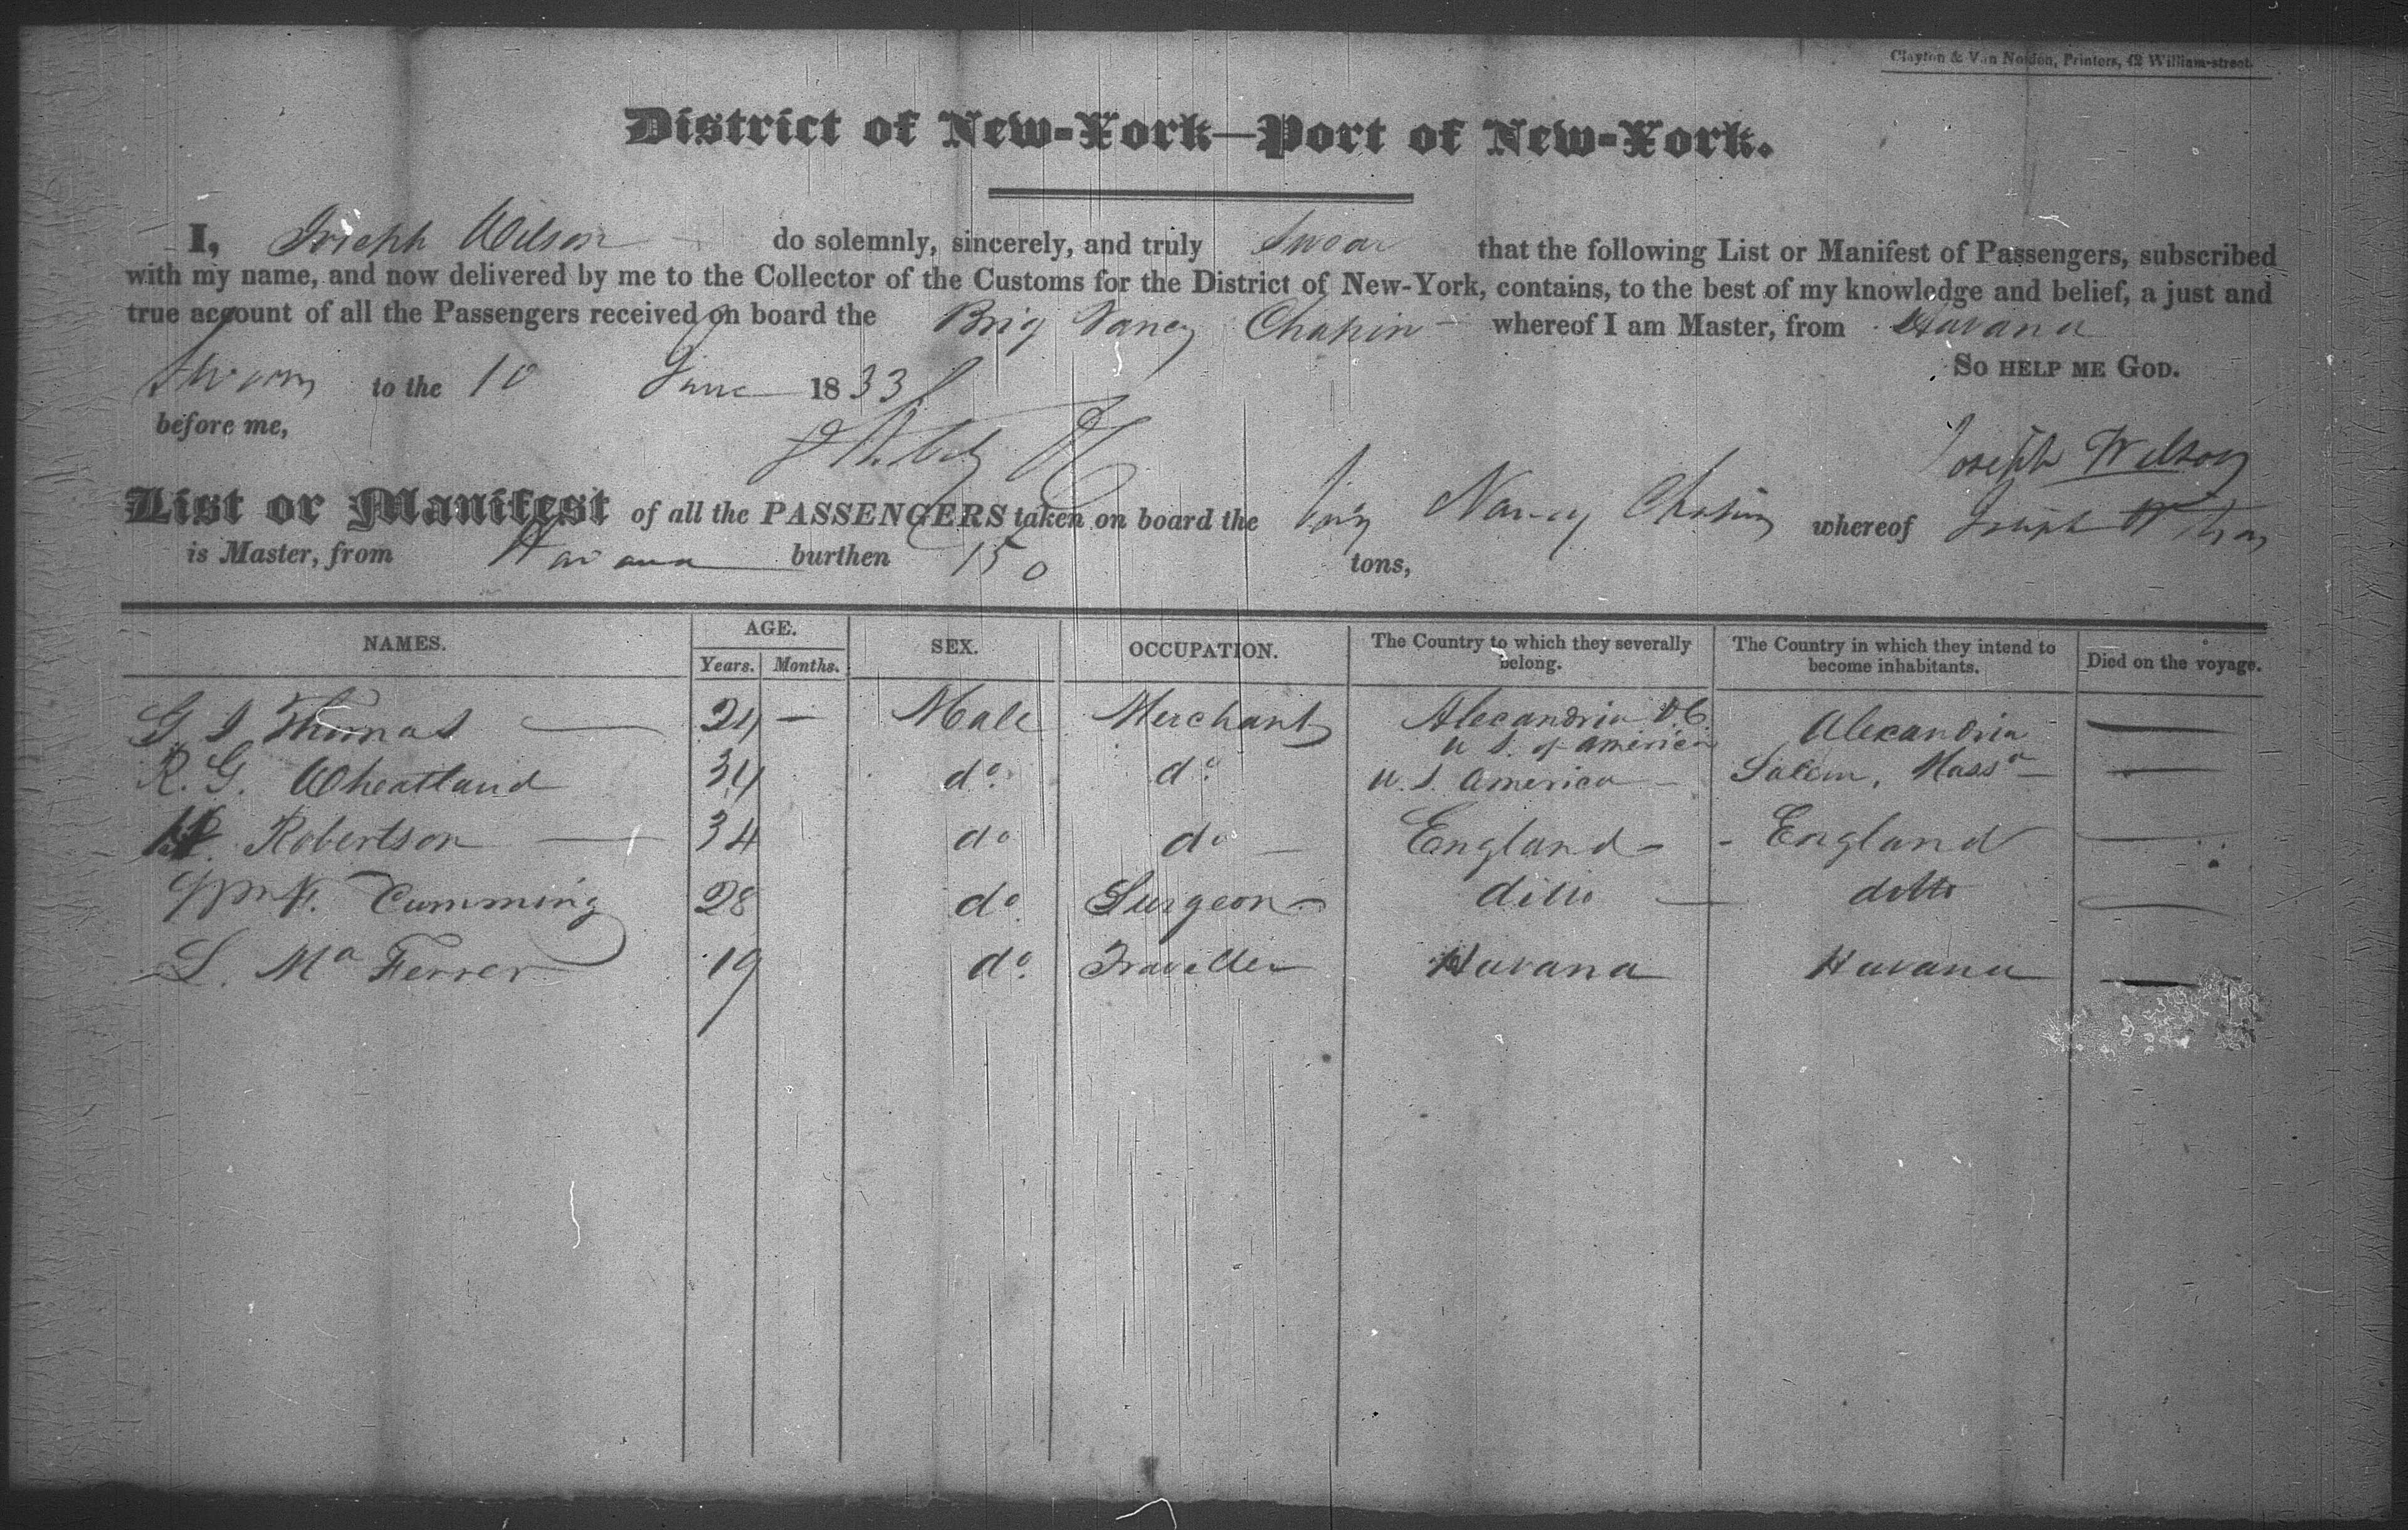 Clayton & Van Norden, Printers, 42 William-street.
District of New-York—Port of New-York.
I, Joseph Wilson do solemnly, sincerely, and truly Swear that the following List or Manifest of Passengers, subscribed
with my name, and now delivered by me to the Collector of the Customs for the District of New-York, contains, to the best of my knowledge and belief, a just and
true account of all the Passengers received on board the Brig Nancy Chapin whereof I am Master, from Havana
So help me God.
Sworn to the 10 June 1833
before me,
Joseph Wilson
List or Manifest of all the PASSENGERS taken on board the brig Nancy Chapin whereof Joseph Wilson
is Master, from Havana burthen 150 tons,
NAMES. AGE. SEX. OCCUPATION. The Country to which they severally belong. The Country in which they intend to become inhabitants. Died on the voyage.
Years. Months.
G I Thomas — 24 — Male Merchant Alexandria D.C. U S. of America Alexandria —
R. G. Wheatland 34 do. do. U. S. America — Salem, Massa — —
Robertson — 34 do do — England — - England —
Wm F. Cumming 28 do. Surgeon — ditto — ditto —
L. Ma Ferrer 19 do. Traveller Havana Havana —